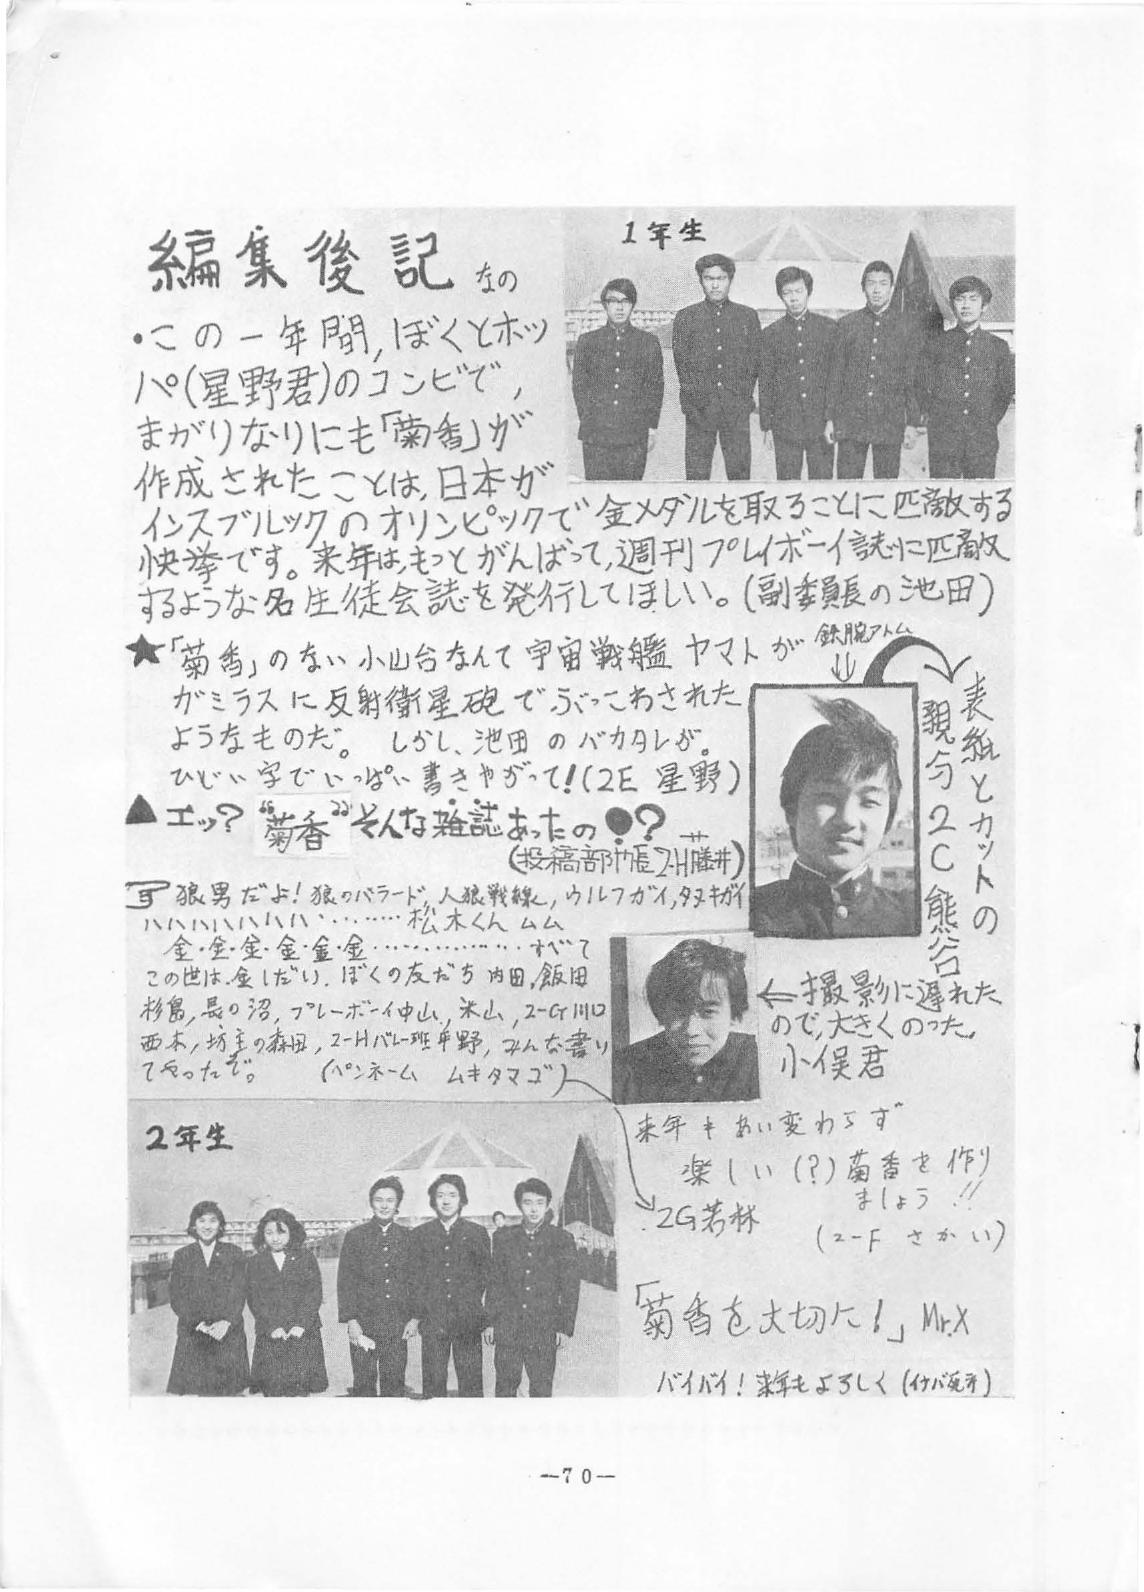 編集後記 なの
1年生
・この一年間,ぼくとホッ
パ(星野君)のコンビで,
まがりなりにも「菊香」が
作成されたことは,日本が
インスブルックのオリンピックで金メダルを取ることに匹敵する
快挙です。来年は,もっとがんばって,週刊プレイボーイ誌に匹敵
するような名生徒会誌を発行してほしい。(副委員長の池田)
★「菊香」のない小山台なんて宇宙戦艦ヤマトが
ガミラスに反射衛星砲でぶっこわされた
ようなものだ。しかし、池田のバカタレが。
ひどい字でいっぱい書きやがって!(2E 星野)
鉄腕アトム
表紙とカットの
親分2C熊谷
▲エッ?“菊香”そんな雑誌あったの!?
(投稿部 2-H藤井)
狼男だよ!狼のバラード,人狼戦線,ウルフガイ,タヌキガイ
ハハハハハハハ・・・・・・・・松木くん ムム
金・金・金・金・金・金・・・・・・・・・・・・・・すべて
この世は,金しだい,ぼくの友だち内田,飯田
杉島,長の沼,プレーボーイ中山,米山,2-G川口
西本,坊主の森田,2-Hバレー班平野,みんな書い
てやったぞ。 (ペンネーム ムキタマゴ)
2G若林
⇐撮影に遅れた
ので,大きくのった。
小俣君
2年生
来年もあい変わらず
楽しい(?)菊香を作り
ましょう!!
(2-F さかい)
「菊香を大切に!」Mr.X
バイバイ!来年もよろしく(イナバ
—70—